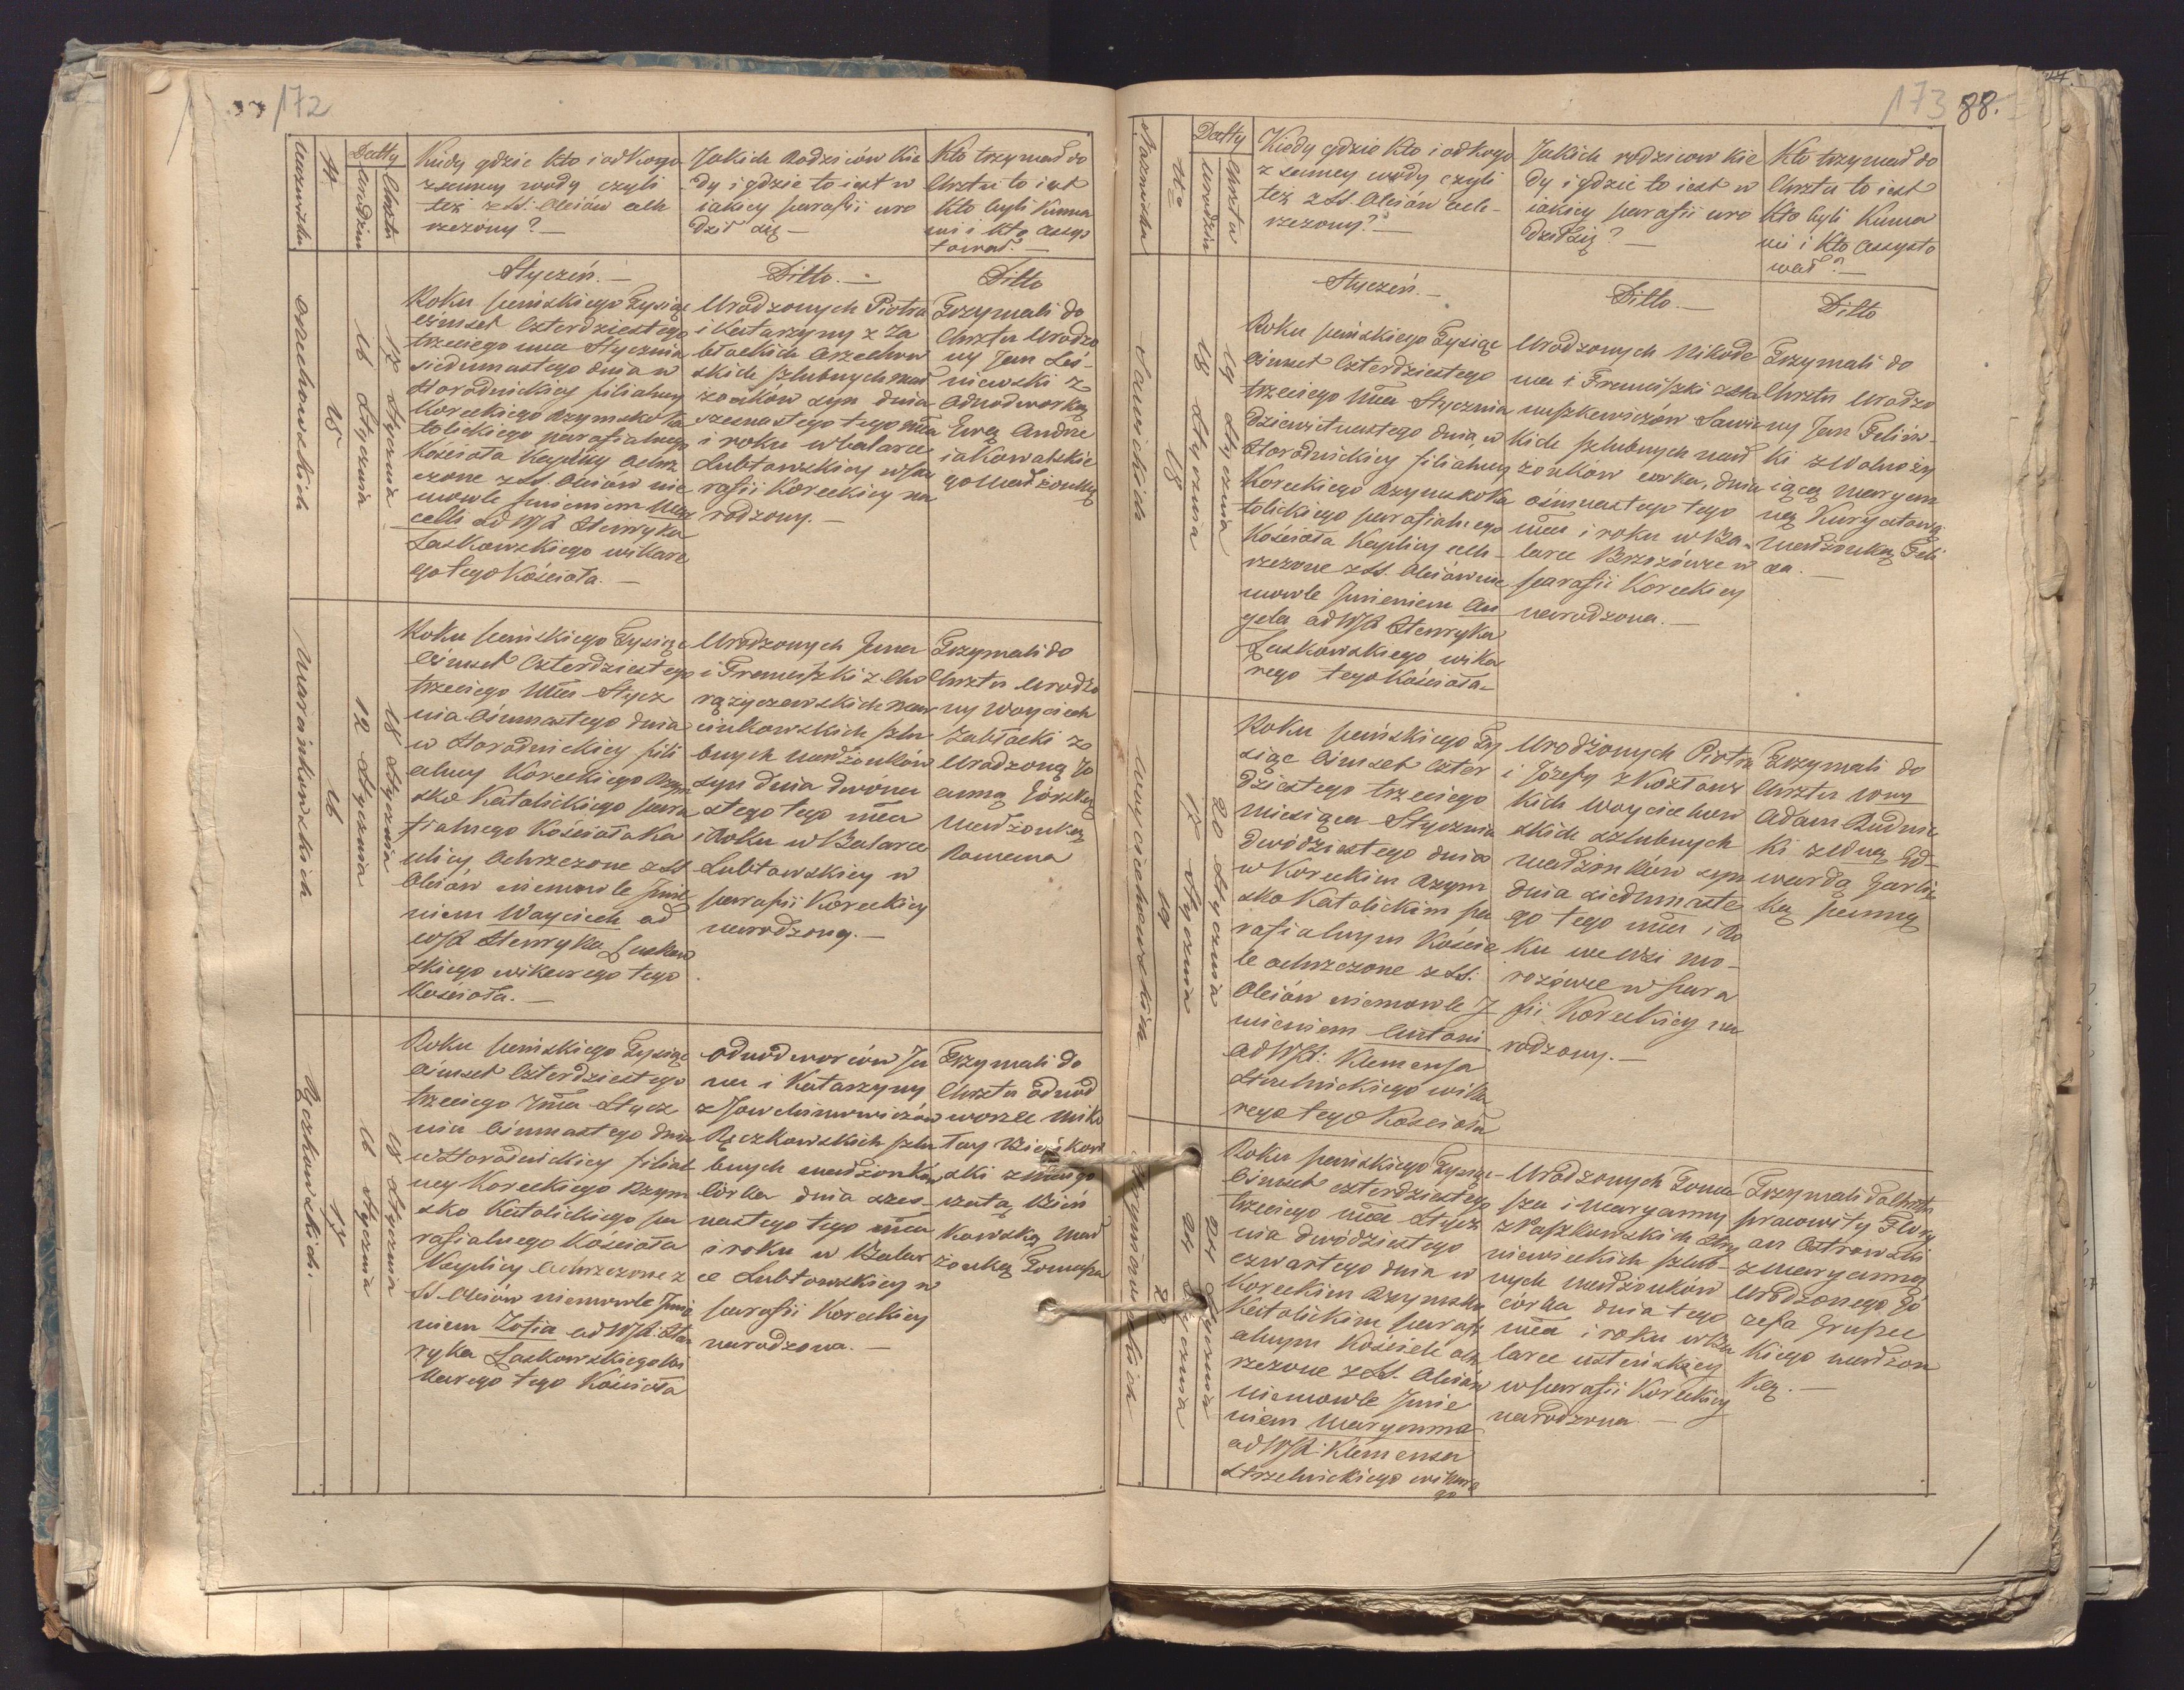 172
Nazwiska
N
Datty
Urodzin
Chrztu
Kiedy gdzie kto i od kogo
z samey wody czyli
też z SS. Oleiów och
rzczony? —
Jakich Rodziców Kie
dy i gdzie to iest w
iakiey parafii uro
dził się —
Kto trzymał do
Chrztu to iest
Kto byli Kuma
mi i kto assys
tował. —
Styczeń. —
Ditto. —
Ditto
Orzechowskich
15
16 Stycznia
17 Stycznia
Roku pańskiego Tysiąc
Ośmset Czterdziestego
trzeciego mca Stycznia
siedmnastego dnia w
Horodnickiey filialney
Koreckiego Rzymsko Ka
tolickiego parafialnego
Kościoła Kaplicy ochrz
czone z SS. Oleiów nie
mowle Jmieniem Mar
celli od WJX Henryka
Laskowskiego wikare
go tego Kościoła. —
Urodzonych Piotra
i Katarzyny z Za
błockich Orzechow
skich szlubnych mał
żonków syn dnia
szesnastego tego mca
i roku w Rudarce
Lubtowskiey w pa
rafii Koreckiey na
rodzony. —
Trzymali do
Chrztu Urodzo
ny Jan Leś-
niewski z
Odnodworką
Ewą Andrze
ia Kowalskie
go małżonką
Marcinkowskich
16
12 Stycznia
18 Stycznia
Roku pańskiego Tysiąc
Ośmset Czterdziestego
trzeciego Mca Stycz
nia Ośmnastego dnia
w Horodnickiey fili
alney Koreckiego Rzym
sko Katolickiego para
fialnego Kościoła Ka
plicy Ochrzczone z SS
Oleiów niemowle Jmie
niem Woyciech od
WJX Henryka Laskow
skiego wikarego tego
Kościoła. —
Urodzonych Jana
i Franciszki z Cho
rążyczewskich Mar
cinkowskich szlu
bnych małżonków
syn dnia dwóna
stego tego mca
i Roku w Rudarce
Lubtowskiey w
parafii Koreckiey
narodzony. —
Trzymali do
Chrztu Urodzo
ny Woyciech
Zabłocki z
Urodzoną Jo
anną Górską
Małżonką
Romana
Rączkowskich. —
17
16 Stycznia
18 Stycznia
Roku pańskiego Tysiąc
Ośmset Czterdziestego
trzeciego Mca Stycz
nia Ośmnastego dnia
w Horodnickiey filial
ney Koreckiego Rzym
sko Katolickiego pa
rafialnego Kościoła
Kaplicy Ochrzczone z
SS. Oleiów niemowle Jmie
niem Zofia od WJX: Hen
ryka Laskowskiego wi
karego tego Kościoła
Odnodworców Ja
na i Katarzyny
z Jowchimowiczów
Rączkowskich szlu
bnych małżonków
Córka dnia szes-
nastego tego mca
i roku w Rudar
ce Lubtowskiey w
parafii Koreckiey
narodzona. —
Trzymali do
Chrztu odnod
worzec Miko
łay
ski z
Kowską mał
żonką Tomasza
173 88.
Nazwiska
No
Datty
Urodzin
Chrztu
Kiedy gdzie kto i od kogo
z samey wody czyli
też z SS. Oleiów och-
rzczony? —
Jakich rodziców kie
dy i gdzie to iest w
iakiey parafii uro
dził się? —
Kto trzymał do
Chrztu to iest
Kto byli Kuma
mi i Kto assysto
wał? —
Styczeń. —
Ditto. —
Ditto
Sawickich
18
18 Stycznia
19 Stycznia
Roku pańskiego Tysiąc
Ośmset Czterdziestego
trzeciego Mca Stycznia
dziewietnastego dnia w
Horodnickiey filialney
Koreckiego Rzymsko Ka
tolickiego parafialnego
Kościoła Kaplicy och-
rzczone z SS. Oleiów nie
mowle Jmieniem An
gela od WJX Henryka
Laskowskiego wika
rego tego Kościoła
Urodzonych Nikode
ma i Franciszki z Ha
nuszkewiczów Sawic
kich szlubnych mał
żonków corka, dnia
ośmnastego tego
mca i roku w Ru-
darce Brzozówce w
parafii Koreckiey
narodzona. —
Trzymali do
Chrztu Urodzo
ny Jan Feliń-
ki z Wolnoży
iącą Maryan
ną Kurytową
małżonką Feli
xa. —
Woyciechowskim
19
17 Stycznia
20 Stycznia
Roku pańskiego Ty
siąc Ośmset Czter
dziestego trzeciego
Miesiąca Stycznia
Dwódziestego dnia
w Koreckim Rzym
sko Katolickim pa
rafialnym Koście
le ochrzczone z SS.
Oleiów niemowle J
mieniem Antoni
od WJX: Klemensa
Strzelnickiego wika
rego tego Kościoła
Urodzonych Piotra
i Józefy z Kozłows
kich Woyciechow
skich szlubnych
małżonków syn
dnia siedmnaste
go tego mca i Ro
ku we Wsi Mo-
rozówce w para
fii Koreckiey na
rodzony. —
Trzymali do
Chrztu Wny
Adam Rudnic
ki z Wną Ed-
wardą Garlic
ką panną
20
24 Stycznia
24 Stycznia
Roku pańskiego Tysiąc
Ośmset czterdziestego
trzeciego mca Stycz
nia dwódziestego
czwartego dnia w
Koreckim Rzymsko
Katolickim parafi
alnym Kościele och
rzczone z SS. Oleiów
niemowle Jmie
niem Maryanna
od WJX: Klemensa
Strzelnickiego wikare
go
Urodzonych Toma
sza i Maryanny
z Paszkowskich Szy
niewieckich szlub-
nych małżonków
córka dnia tego
mca i roku w Ru
darce usteńskiey
w parafii Koreckiey
narodzona —
Trzymali do Chrztu
pracowity Flory
an Ostrowski
z Maryanną
Urodzonego Jó
zefa Gruszec
kiego małżon
ką. —